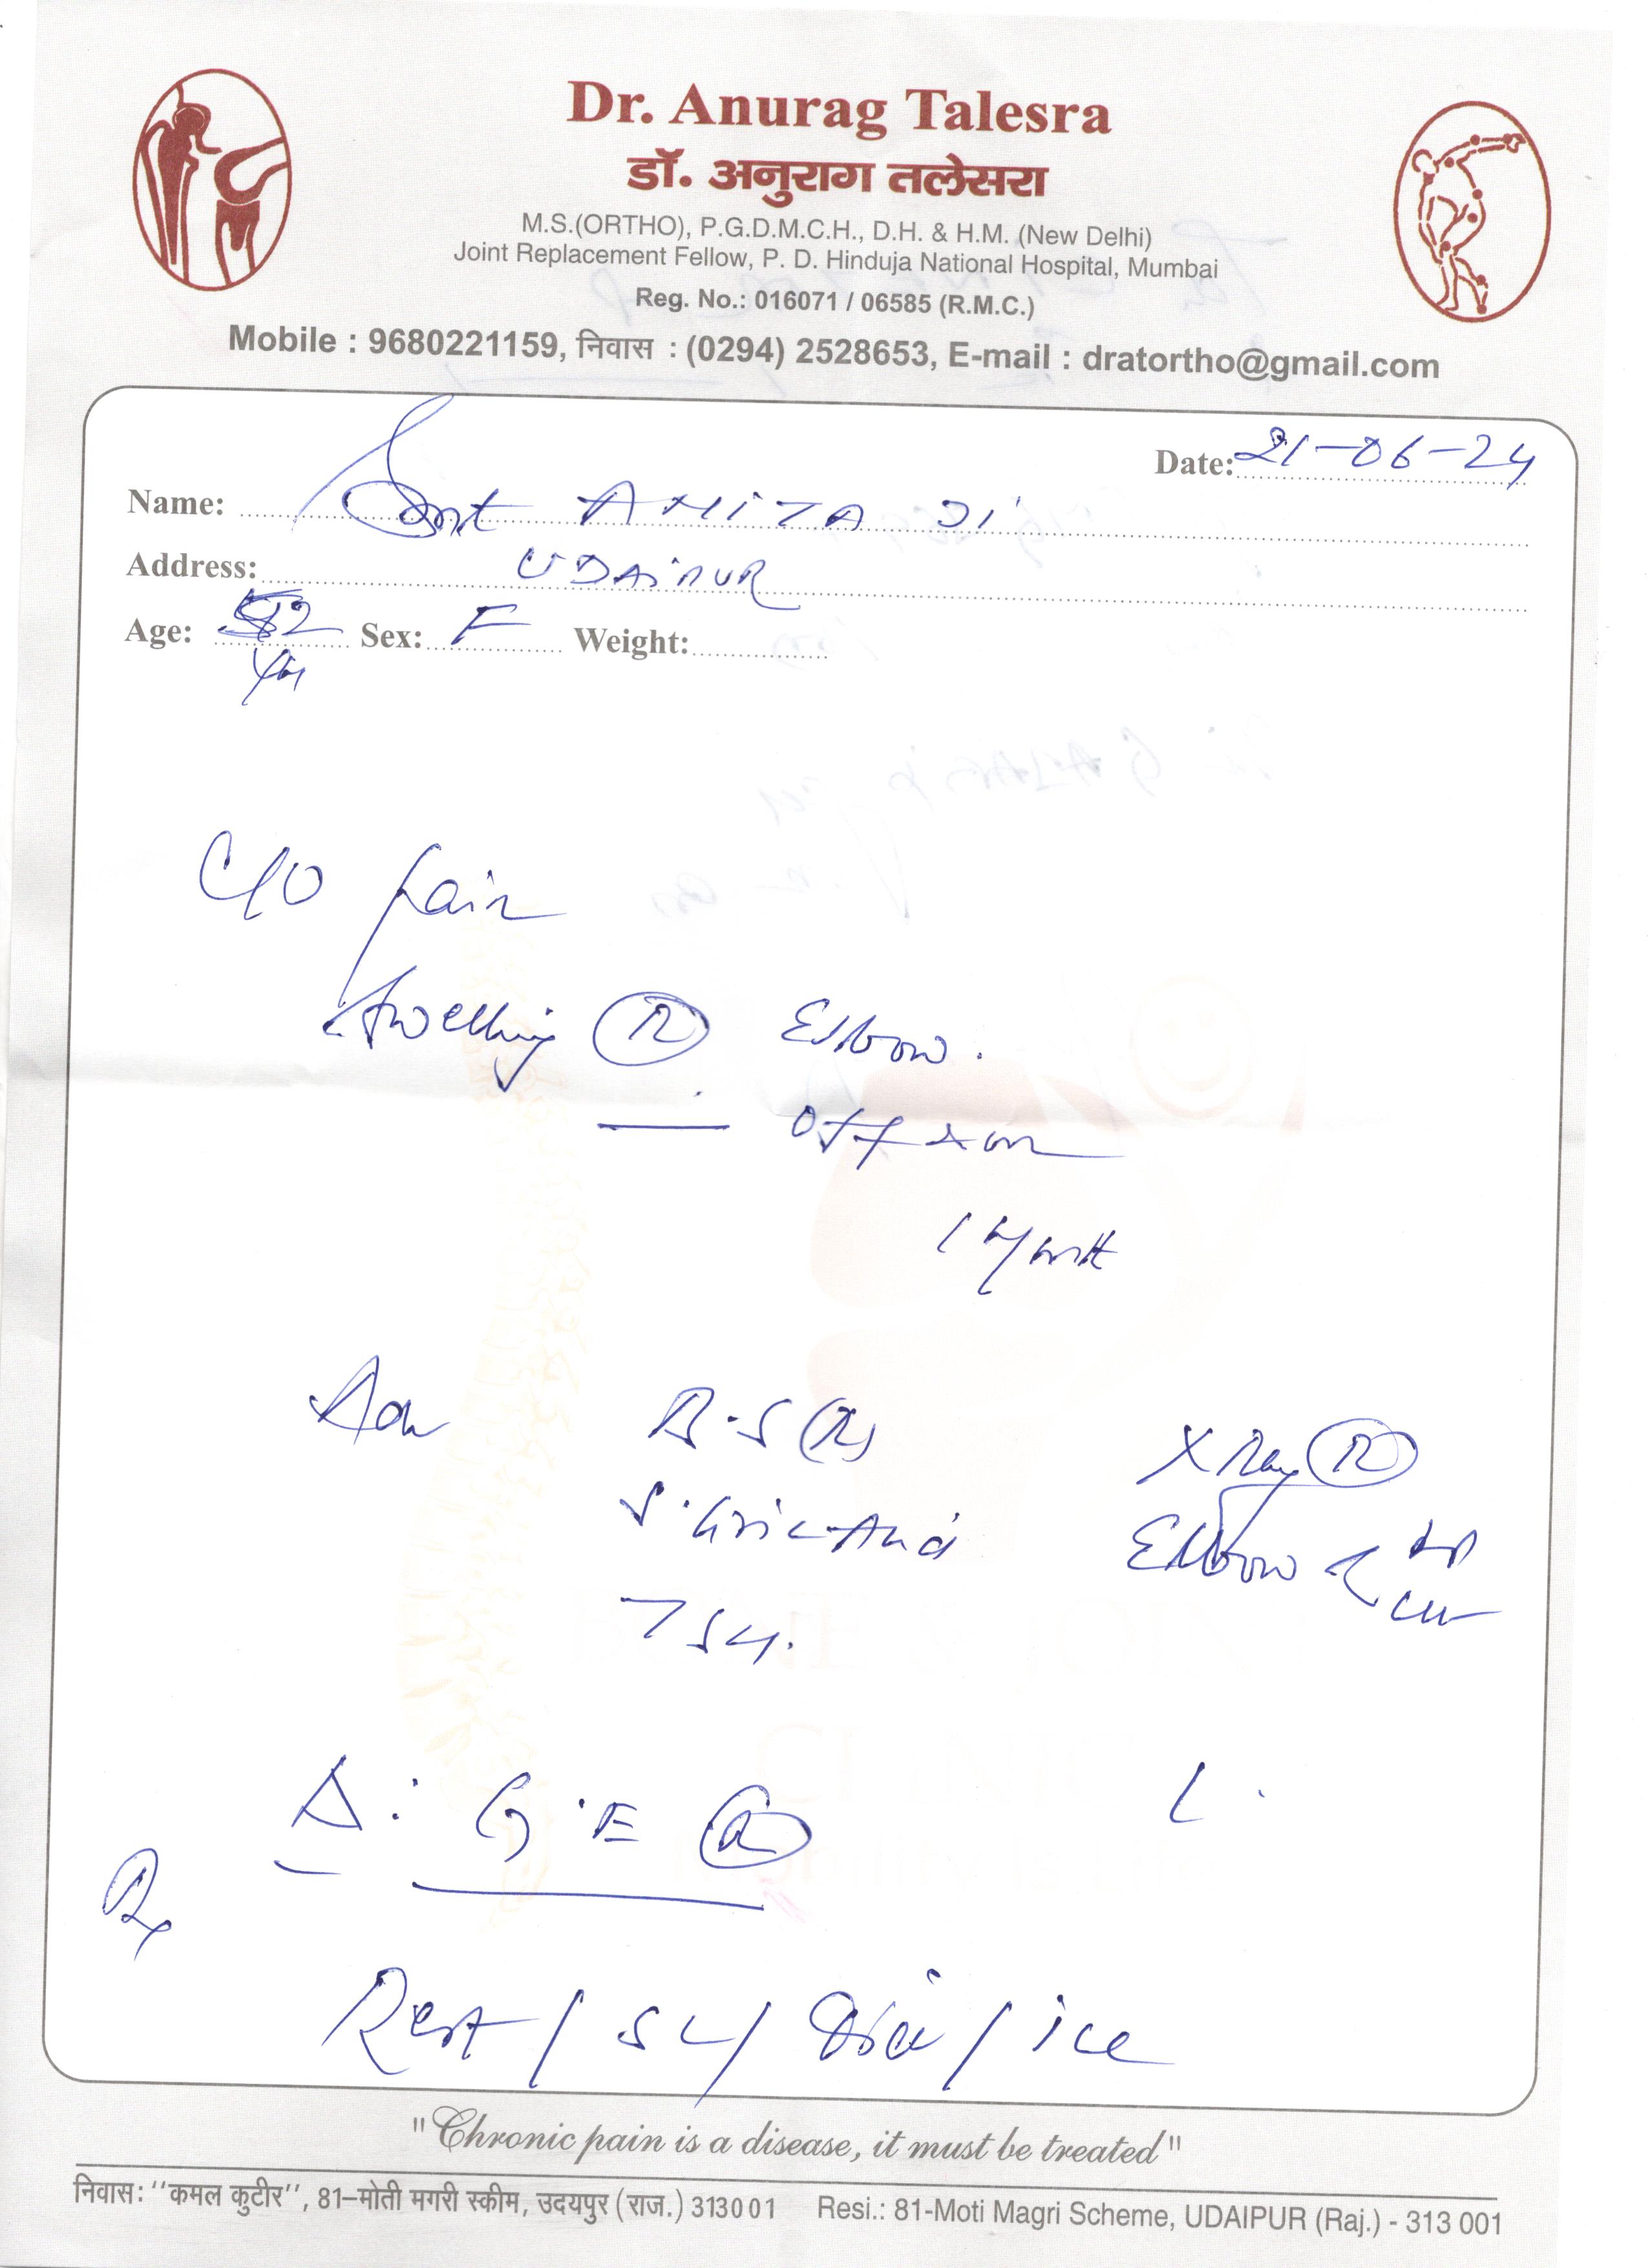 Dr. Anurag Talesra
डॉ. अनुराग तलेसरा
M.S.(ORTHO), P.G.D.M.C.H., D.H. & H.M. (New Delhi)
Joint Replacement Fellow, P. D. Hinduja National Hospital, Mumbai
Reg. No.: 016071 / 06585 (R.M.C.)
Mobile : 9680221159, निवास : (0294) 2528653, E-mail : dratortho@gmail.com
Date: 21-06-24
Name: Smt AMITA JI
Address: UDAIPUR
Age: 52 Yrs Sex: F Weight:
C/O pain
swelling R Elbow.
off & on
1 Month
Adv B.S (R)
S. Uric Acid
TSH.
X Ray R
Elbow AP
Lat
Δ: G.E R
Rx
Rest / / / ice
"Chronic pain is a disease, it must be treated"
निवास: ''कमल कुटीर'', 81-मोती मगरी स्कीम, उदयपुर (राज.) 313001 Resi.: 81-Moti Magri Scheme, UDAIPUR (Raj.) - 313 001